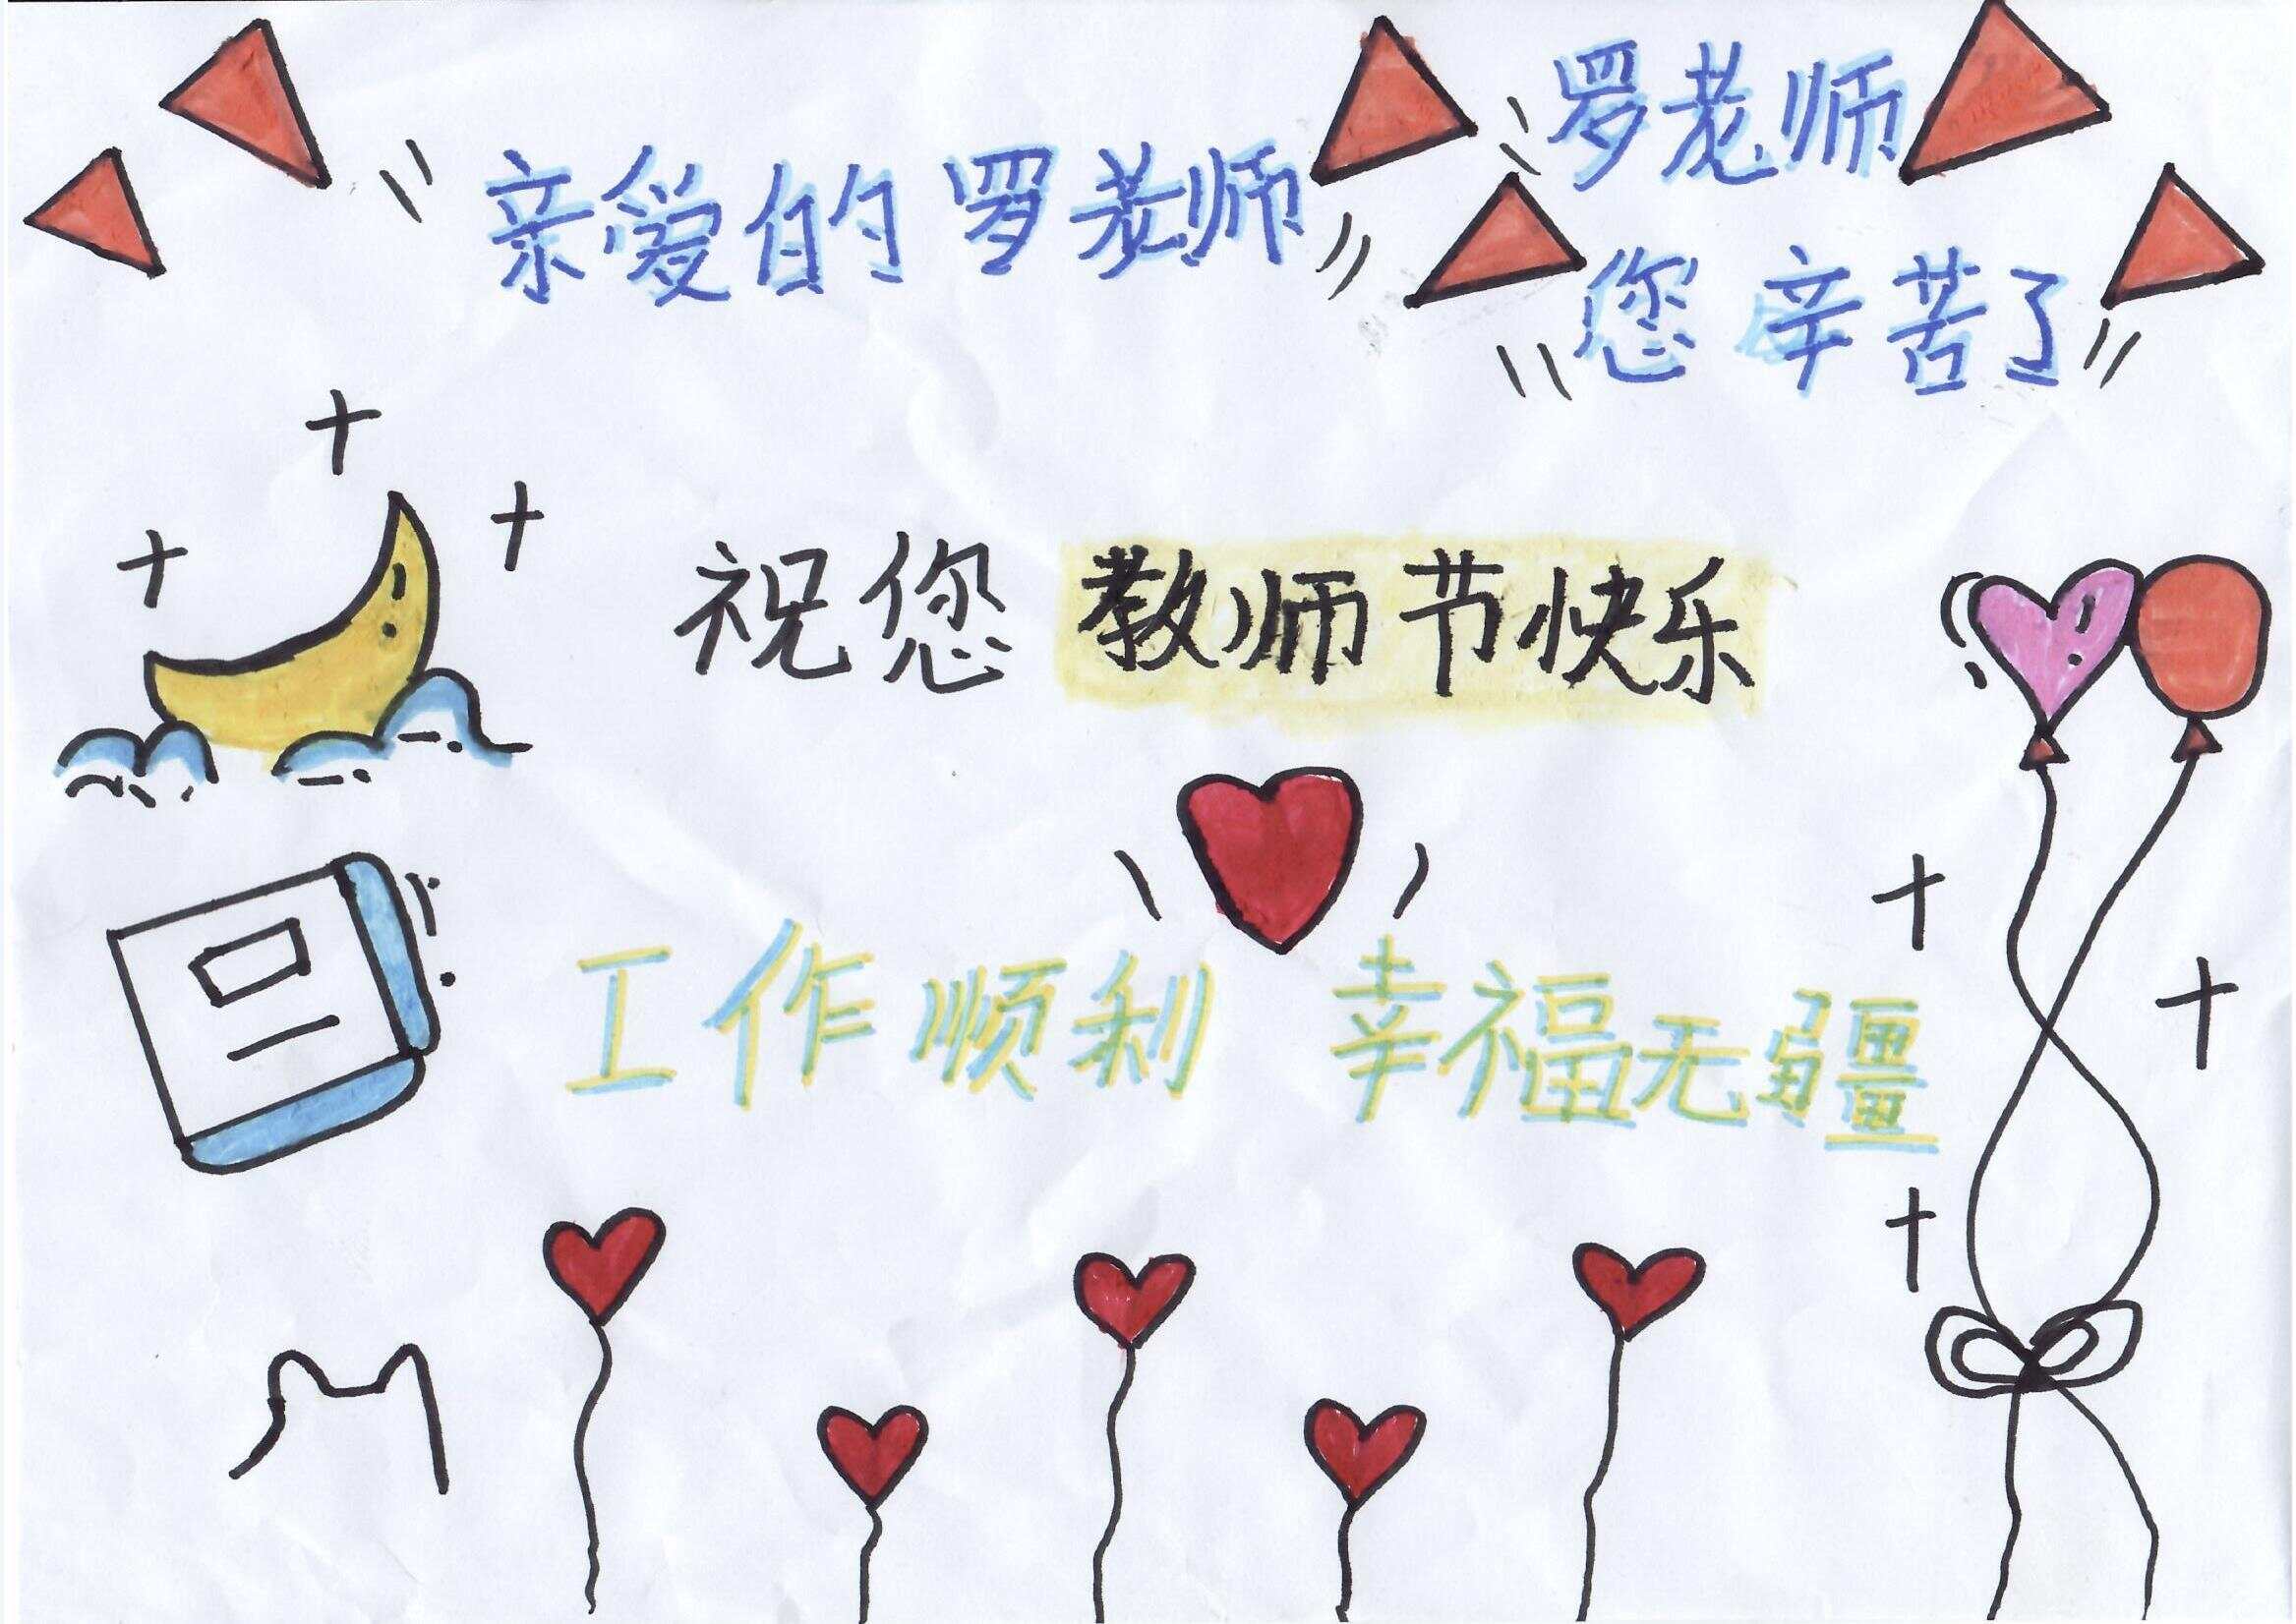 亲爱的罗老师
罗老师
您辛苦了
祝您教师节快乐
工作顺利 幸福无疆